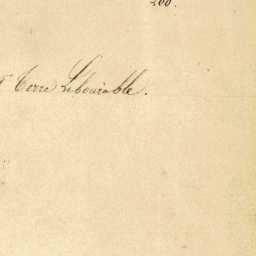 200.
Terre Labourable.